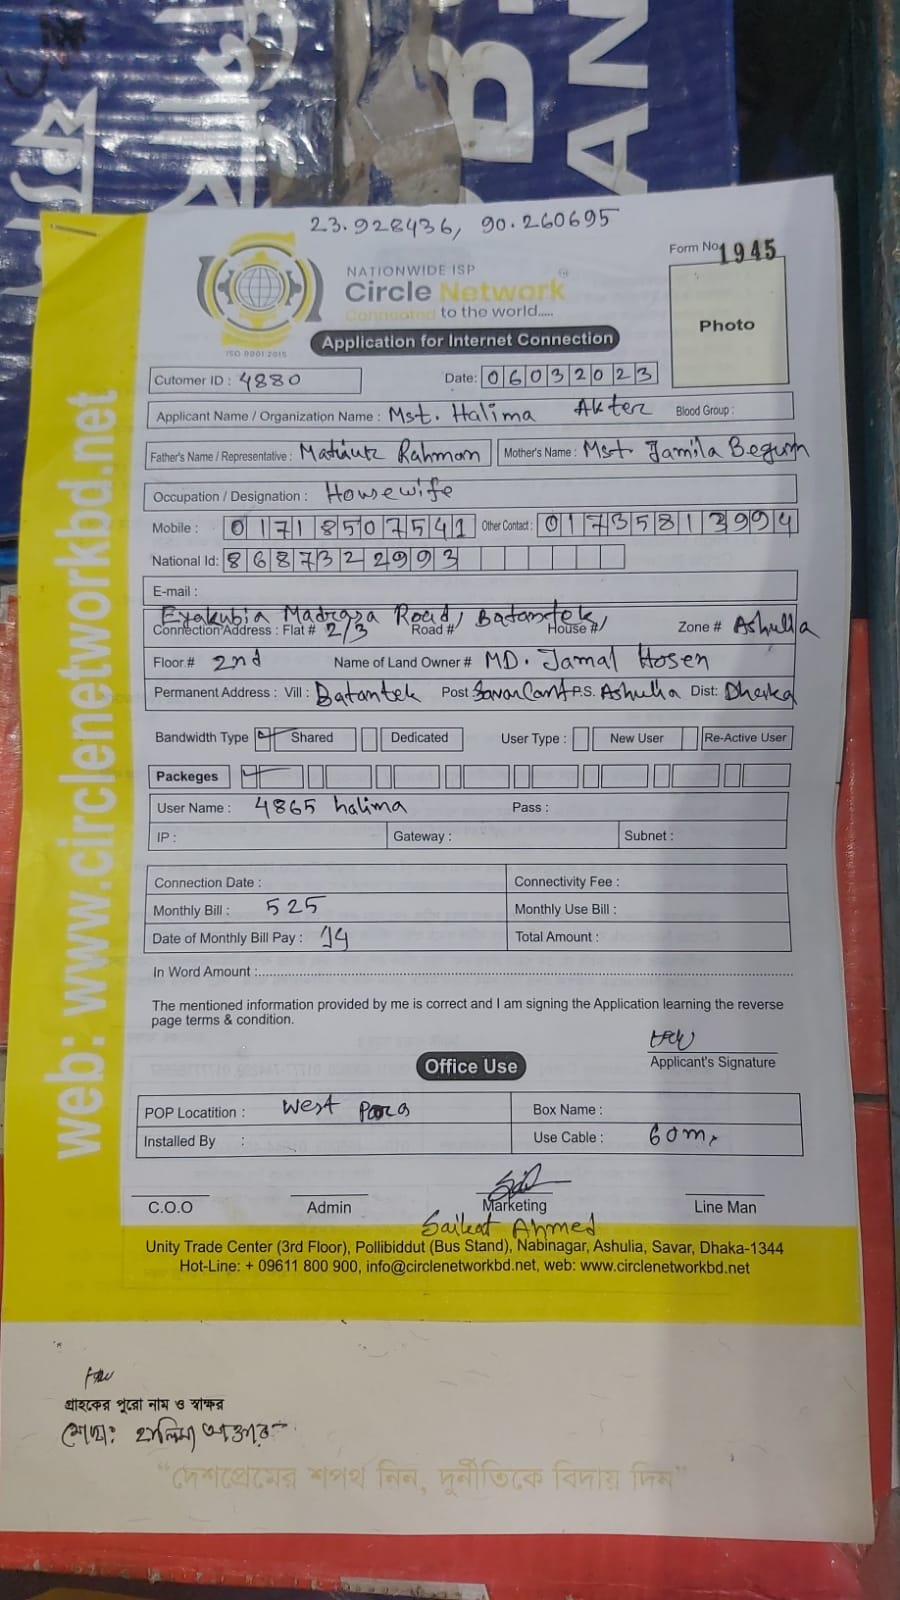 23.928436, 90.260695
Form No. 1945
NATIONWIDE ISP
Circle Network ®
Connected to the world.....
ISO 9001:2015
Application for Internet Connection
Photo
Cutomer ID : 4880 Date: 06032023
Applicant Name / Organization Name : Mst. Halima Akter Blood Group :
Father's Name / Representative : Matiur Rahman Mother's Name : Mst. Jamila Begum
Occupation / Designation : Housewife
Mobile : 01718507541 Other Contact : 01735813994
National Id: 8687322993
E-mail :
Eyakubia Madrasa Road, Batantek,
Connection Address : Flat # 2/3 Road # House # Zone # Ashulia
Floor.# 2nd Name of Land Owner # MD. Jamal Hosen
Permanent Address : Vill : Batantek Post Savar Cant P.S. Ashulia Dist: Dhaka
Bandwidth Type Shared Dedicated User Type : New User Re-Active User
Packeges
User Name : 4865 halima Pass :
IP : Gateway : Subnet :
Connection Date : Connectivity Fee :
Monthly Bill : 525 Monthly Use Bill :
Date of Monthly Bill Pay : 14 Total Amount :
In Word Amount :
The mentioned information provided by me is correct and I am signing the Application learning the reverse
page terms & condition.
Applicant's Signature
Office Use
POP Locatition : West Para Box Name :
Installed By : Use Cable : 60m.
C.O.O Admin Marketing Line Man
Saikat Ahmed
Unity Trade Center (3rd Floor), Pollibiddut (Bus Stand), Nabinagar, Ashulia, Savar, Dhaka-1344
Hot-Line: + 09611 800 900, info@circlenetworkbd.net, web: www.circlenetworkbd.net
web: www.circlenetworkbd.net
গ্রাহকের পুরো নাম ও স্বাক্ষর
মোছাঃ হালিমা আক্তার
“দেশপ্রেমের শপথ নিন, দুর্নীতিকে বিদায় দিন”